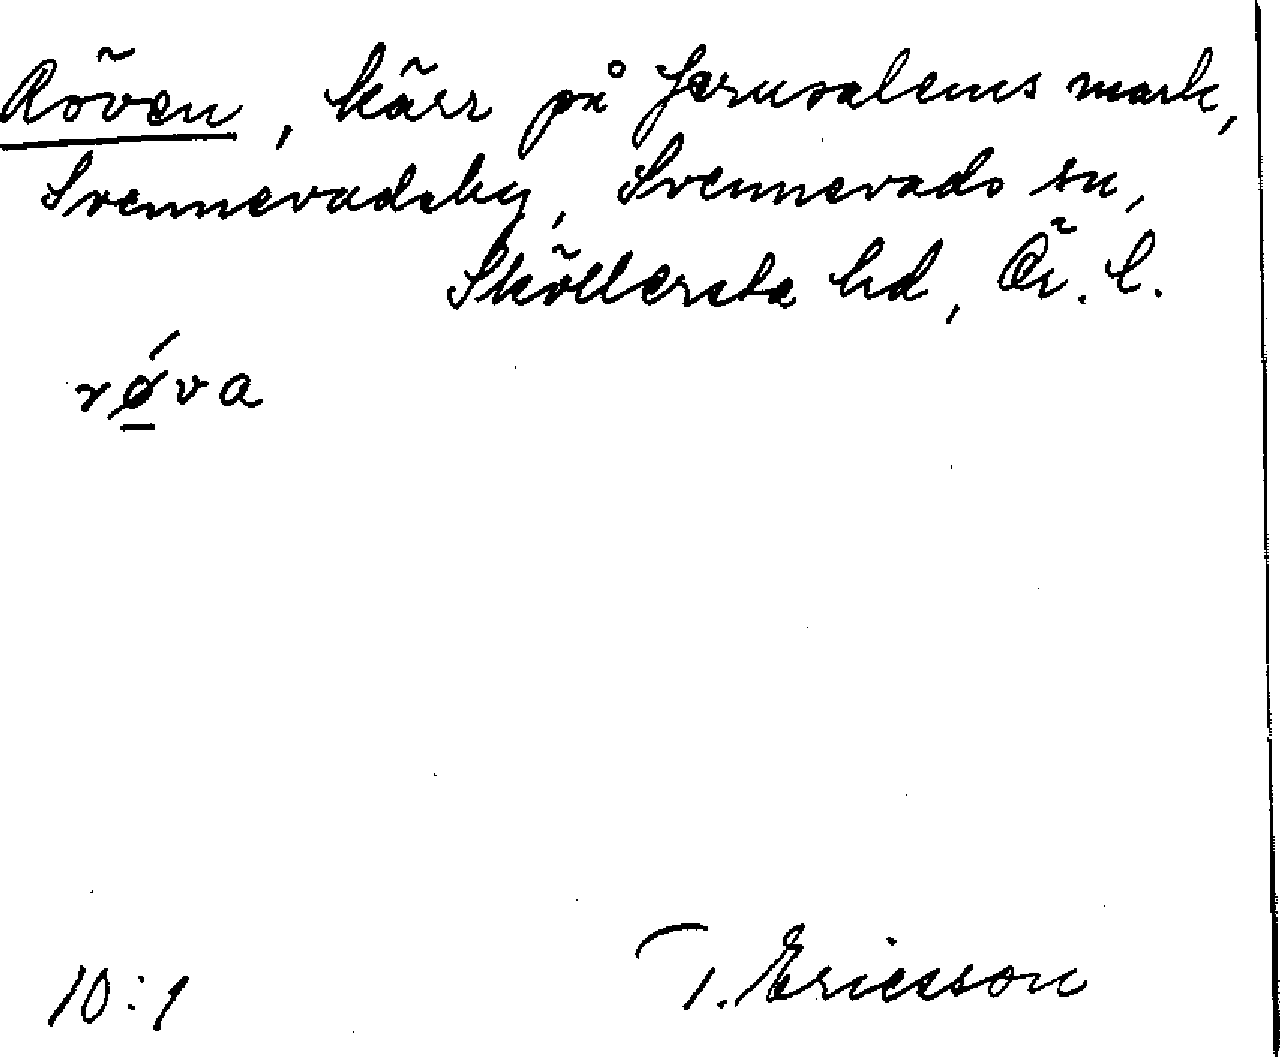 Röven, kärr på Jerusalems mark,
Svennevadsby, Svennevads sn,
Sköllersta hd, Ör. l.
rǿva
10:1
T. Ericsson